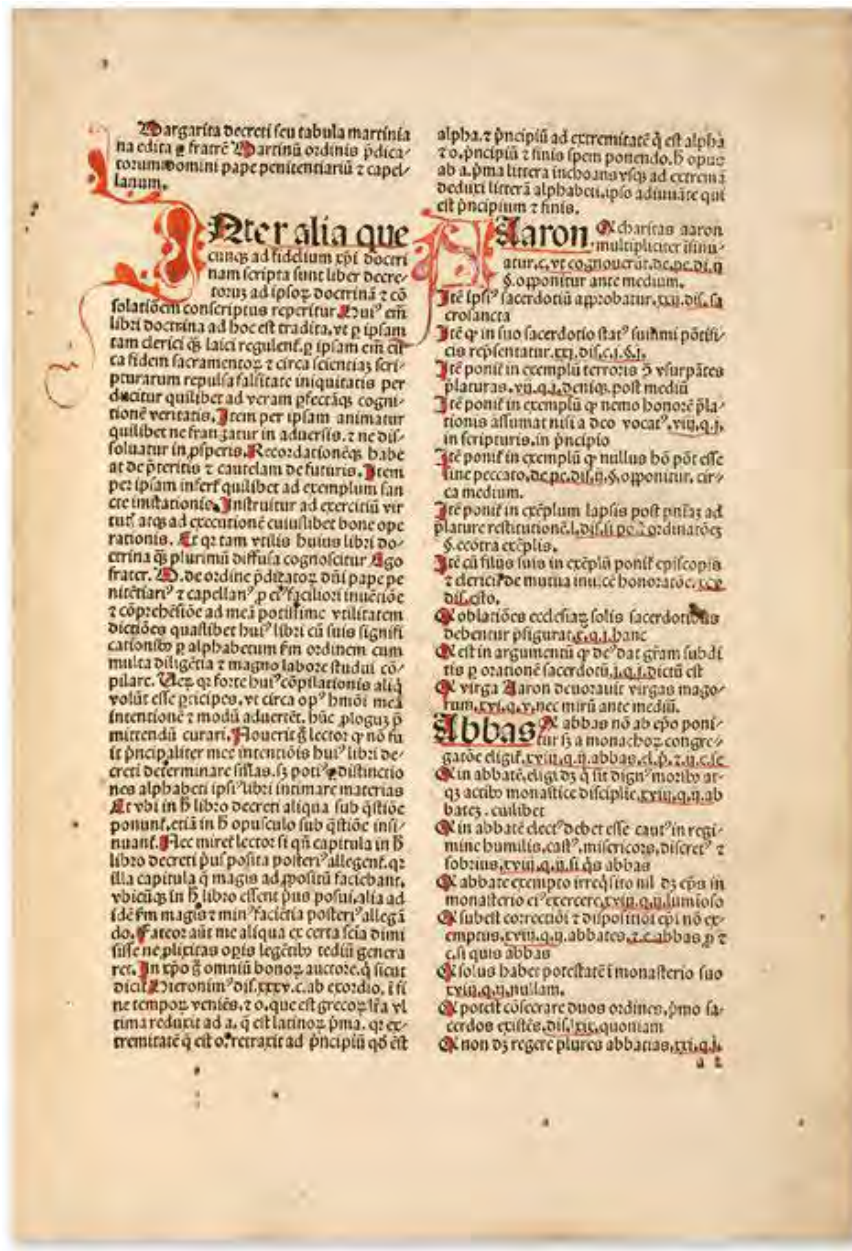 Margarita decreti seu tabula martinia
na edita ꝑ fratrē Martinū ordinis p̄dica⸗
torum domini pape penitenciariū ⁊ capel⸗
lanum.
INter alia que
cunqꝫ ad fidelium xp̄i doctri
nam scripta sunt liber decre⸗
torum ad ipsoꝝ doctrinā ⁊ cō
solatiōem conscriptus reperitur. Huiꝰ em̄
libri doctrina ad hoc est tradita, vt ꝑ ipsam
tam clerici qꝫ laici regulenť. ꝑ ipsam em̄ cir
ca fidem sacramentoꝝ ⁊ circa scientiaꝫ scri⸗
pturarum repulsa falsitate iniquitatis per
ducitur quilibet ad veram ꝑfectāqꝫ cogni⸗
tionē veritatis. Item per ipsam animatur
quilibet ne frangatur in aduersis. ⁊ ne dis⸗
soluatur in ꝓsperis. Recordationēqꝫ habe
at de p̄teritis ⁊ cautelam de futuris. Item
per ipsam inferť quilibet ad exemplum san
cte imitationis. Instruitur ad exercitiū vir
tutꝭ atqꝫ ad executionē cuiuslibet bone ope
rationis. Et qꝛ tam vtilis huius libri do⸗
ctrina qꝫ plurimū diffusa cognoscitur Ego
frater. M. de ordine p̄dicatoꝝ dn̄i pape pe
nitētiariꝰ ⁊ capellanꝰ, ꝓ eiꝰ faciliori inuētiōe
⁊ cōprehēsiōe ad meā potissime vtilitatem
dictiōes quaslibet huiꝰ libri cū suis signifi
cationibꝫ ꝑ alphabetum ẜm ordinem cum
multa diligētia ⁊ magno labore studui cō⸗
pilare. Veꝝ qꝛ forte huiꝰ cōpilationis aliq̄
volūt esse ꝑticipes, vt circa opꝰ hmōi meā
intentionē ⁊ modū aduertēt. hūc ꝓloguꝫ p̄
mittendū curaui. Nouerit g̊ lector qꝙ nō fu
it p̄ncipaliter mee intentiōis huiꝰ libri de⸗
creti determinare sillas. sꝫ potiꝰ ꝑ distinctio
nes alphabeti ipsiꝰ libri intimare materias
Et vbi in h̄ libro decreti aliqua sub q̄stiōe
ponunť. etiā in h̄ opusculo sub q̄stiōe insi⸗
nuanť. Nec mireť lector si qn̄ capitula in h̄
libro decreti p̄us posita posteriꝰ allegenť. qꝛ
illa capitula q̄ magis ad ꝓpositū faciebant,
vbicūqꝫ in h̄ libro essent p̄us posui, alia ad
idē ẜm magis ⁊ minꝰ faciētia posteriꝰ allegā
do. Fateor aūt me aliqua ex certa scīa dimi
sisse ne ꝓlixitas opis legētibꝫ tediū genera
ret. In xp̄o g̊ omniū bonoꝝ auctore. q̄ sicut
dicit Hieronimꝰ dis. xxxv. c. ab exordio. ī fi
ne tempoꝝ veniēs. ⁊ o. que est grecoꝝ lr̄a vl
tima reduxit ad a. q̄ est latinoꝝ p̄ma. qꝛ ex⸗
tremitatē q̄ est o. retraxit ad p̄ncipiū qd̄ ēst
alpha. ⁊ p̄ncipiū ad extremitatē q̄ est alpha
⁊ o. p̄ncipiū ⁊ finis spem ponendo. h̄ opus
ab a. p̄ma littera inchoans vsqꝫ ad extremā
deduxi litterā alphabeti. ipso adiuuāte qui
est p̄ncipium ⁊ finis.
AAaron. Qꝙ charitas aaron
multipliciter īsinu⸗
atur. c. vt cognouerūt. de. pe. di. ij
§. opponitur ante medium.
Itē ipsiꝰ sacerdotiū approbatur. xxij. dis. sa
crosancta
Itē qꝙ in suo sacerdotio statꝰ summi pōtifi⸗
cis rep̄sentatur. xxj. dis. c. j. §. j.
Itē poniť in exemplū terroris ꝯ vsurpātes
p̄laturas. vij. q. j. deniqꝫ. post mediū
Itē poniť in exemplū qꝙ nemo honorē p̄la⸗
tionis assumat nisi a deo vocatꝰ. viij. q. j.
in scripturis. in p̄ncipio
Itē poniť in exemplū qꝙ nullus hō pōt esse
sine peccato. de pe. dis. ij. §. opponitur. cir⸗
ca medium.
Itē poniť in exēplum lapsis post pn̄iaꝫ ad
p̄lature restitutionē. l. dis. si po. ⁊ ordinatōeꝫ
§. ecōtra exēplis.
Itē cū filijs suis in exēplū poniť episcopis
⁊ clericis de mutua inuicē honoratōe. xcv
dis. esto.
Qꝙ oblatiōes ecclesiaꝝ solis sacerdotibus
debentur p̄sigurať. x. q. j. hanc
Qꝙ est in argumentū qꝙ deꝰ dat gr̄am subdi
tis ꝑ orationē sacerdotū. j. q. j. dictū est
Qꝙ virga Aaron deuorauit virgas mago⸗
rum. xvi. q. v. nec mirū ante mediū.
Abbas Qꝙ abbas nō ab ep̄o poni⸗
tur sꝫ a monachoꝝ congre⸗
gatōe eligiť. xviij. q. ij. abbas. el. p̄. ⁊. ij. c. se
Qꝙ in abbatē. eligi dꝫ q̄ sit dignꝰ moribꝫ at⸗
qꝫ actibꝫ monastice discipline. xviij. q. ij. ab
bateꝫ. cuilibet
Qꝙ in abbatē electꝰ debet esse cautꝰ in regi⸗
mine humilis, castꝰ, misericors, discretꝰ ⁊
sobrius. xviij. q. ij. si q̄s abbas
Qꝙ abbate exempto irreq̄sito nil dꝫ ep̄s in
monasterio eiꝰ exercere. xviij. q. ij. luminoso
Qꝙ subest correctiōi ⁊ dispositiōi ep̄i nō ex⸗
emptus. xviij. q. ij. abbates. ⁊. c. abbas ꝓ ⁊
c. si quis abbas
Qꝙ solus habet potestatē ī monasterio suo
xviij. q. ij. nullam.
Qꝙ potest cōsecrare duos ordines. p̄mo sa⸗
cerdos existēs. dis. lxix. quoniam
Qꝙ non dꝫ regere plures abbatias. xxj. q. j.
a 2